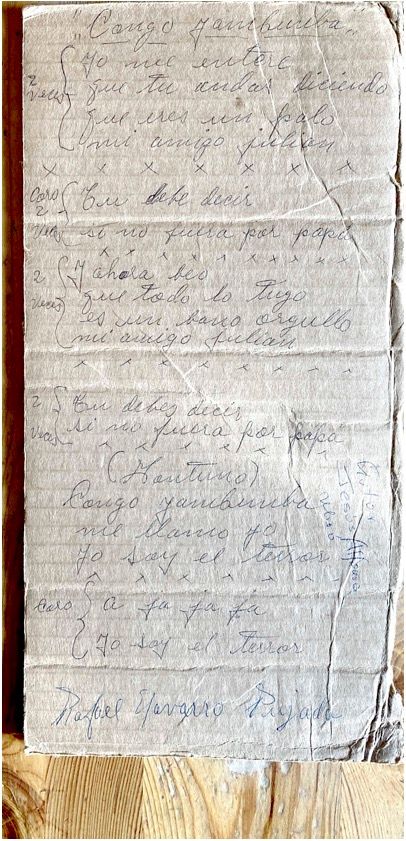 "Congo Yambumba"
2 veces
Yo me entere
que tu andas diciendo
que eres un palo
mi amigo julian
x x x x x x x
Coro 2 Vec
Tu debe decir
si no fuera por papa
x x x x x x x x x
2 veces
Y ahora beo
que todo lo tullo
es un bano orgullo
mi amigo Julian
x x x x x x x x
2 veces
Tu debes decir
si no fuera por papa
x x x x x x x
(Montuno)
Congo yambumba
me llamo yo
Yo soy el terror
x x x x x x x
Coro
a ja ja ja
Yo soy el terror
Autor
Jesus Alfonso
Rafael Navarro Pujada